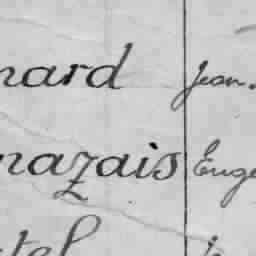 nard Jean.
nazais Euge
tel